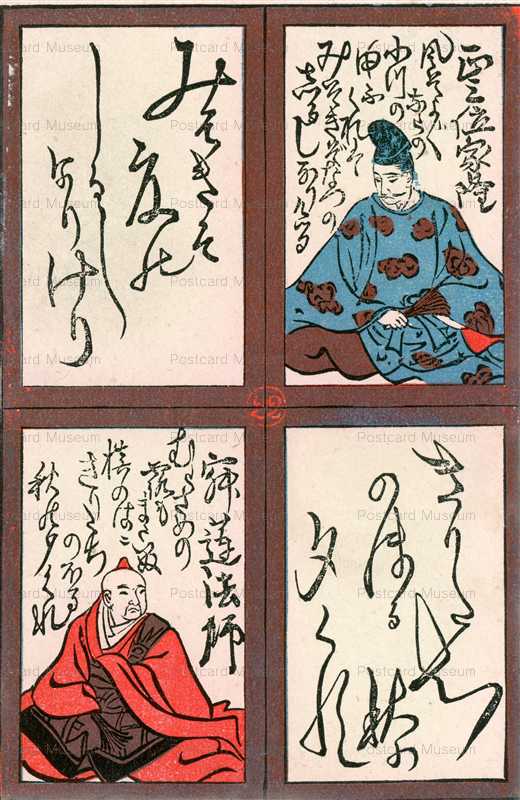 正三位家隆
風そよく
ならの
小川の
ゆふくれは
みそきそなつの
しるしなりける
みそきそ
夏の
しるし
なりける
きりたち
のほる
秋の
夕くれ
寂蓮法師
むらさめの
露もまたひぬ
槙のはに
きりたち
のほる
秋の夕くれ
Postcard Museum